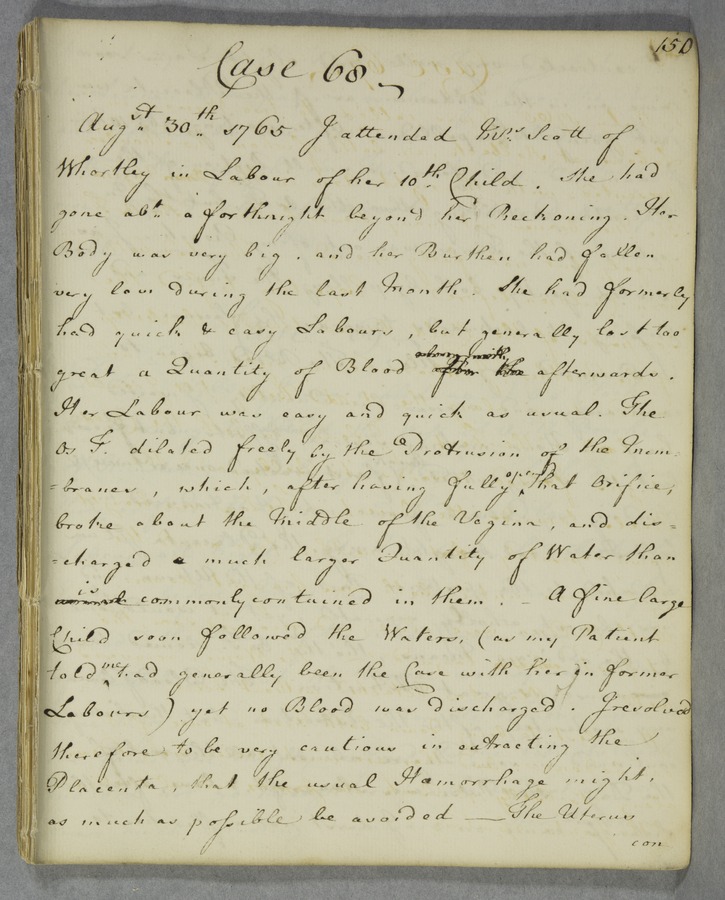 150
Case 68
Augst 30th 1765 I attended Mrs. Scott of
Whortley in Labour of her 10th. Child. She had
gone abt. a forthnight beyond her Reckoning. Her
Body was very big, and her Burthen had fallen
very low during the last Month. She had formerly
had quick & easy Labours, but generally lost too
great a Quantity of Blood afterwards.
Her Labour was easy and quick as usual. The
Os T. dilated freely by the Protrusion of the Mem:
=branes, which, after having fully open'd that Orifice,
broke about the Middle of the Vagina, and dis=
=charged a much larger Quantity of Water than
is commonly contained in them. – A fine large
Child soon followed the Waters, (as my Patient
told me had generally been the Case with her in former
Labours) yet no Blood was discharged. I resolved
therefore to be very cautious in extracting the
Placenta, that the usual Hæmorrhage might,
as much as possible be avoided — The Uterus
con